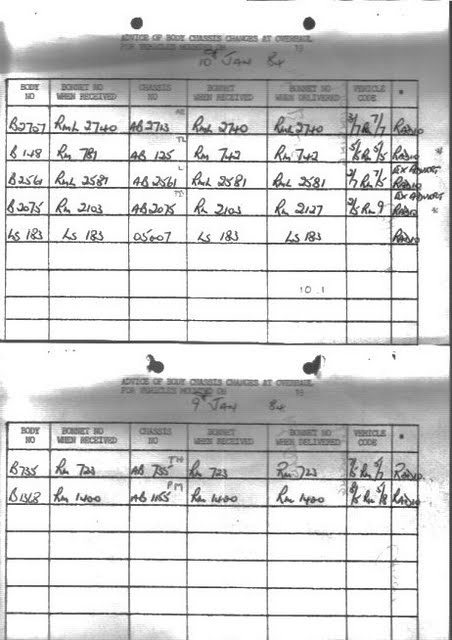 ADVICE OF BODY CHASSIS CHANGES AT OVERHAUL
FOR VEHICLES MOUNTED ON 19
10th JAN 84
BODY NO BONNET NO WHEN RECEIVED CHASSIS NO BONNET BONNET NO WHEN DELIVERED VEHICLE CODE *
B2707 RML 2740 AB2713 RML 2740 RML 2740 3/7 RM 7/7 RADIO
B148 RM 781 AB 125 RM 742 RM 742 5/5 RM 5/5 RADIO *
B2561 RML 2581 AB2561 RML 2581 RML 2581 2/7 RM 7/5 EX ADVERT RADIO
B2075 RM 2103 AB2075 RM 2103 RM 2127 2/5 RM 9 EX ADVERT RADIO *
LS 183 LS 183 05007 LS 183 LS 183 RADIO
10.1
ADVICE OF BODY CHASSIS CHANGES AT OVERHAUL
FOR VEHICLES MOUNTED ON 19
9th JAN 84
BODY NO BONNET NO WHEN RECEIVED CHASSIS NO BONNET BONNET NO WHEN DELIVERED VEHICLE CODE *
B735 RM 723 AB 735 TH RM 723 RM 723 RADIO
B1368 RM 1400 AB 1165 PM RM 1400 RM 1400 8/5 RM 5/8 RADIO